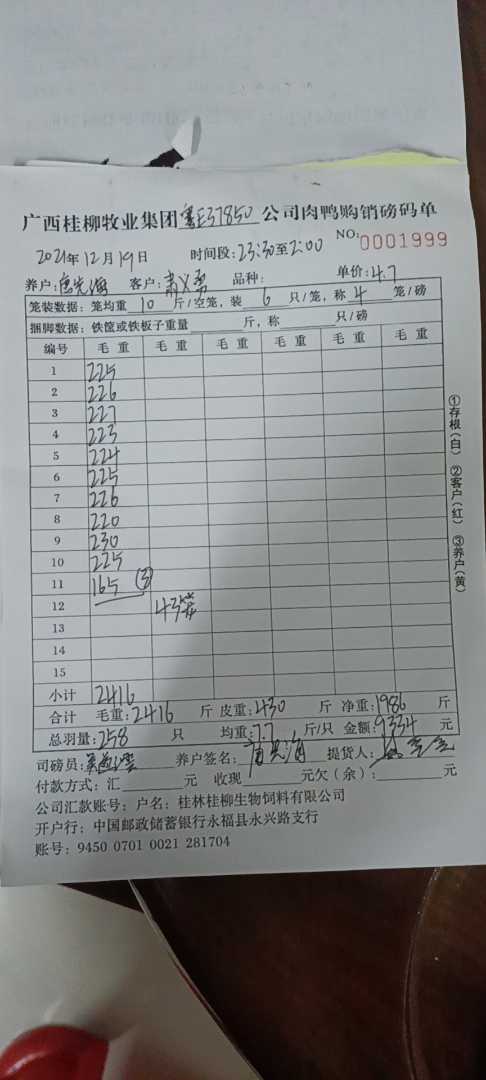 广西桂柳牧业集团粤E37850公司肉鸭购销磅码单
NO:0001999
2021年12月19日 时间段:23:30至2:00
养户: 客户: 品种: 单价:4.7
笼装数据:笼均重 10 斤/空笼,装 6 只/笼,称 4 笼/磅
捆脚数据:铁筐或铁板子重量 斤,称 只/磅
编号 毛重 毛重 毛重 毛重 毛重 毛重
1 225
2 226
3 227
4 223
5 224
6 225
7 226
8 220
9 230
10 225
11 165 (3)
12 43笼
13
14
15
小计 2416
合计 毛重:2416 斤 皮重:430 斤 净重:1986 斤
总羽量:258 只 均重:7.7 斤/只 金额:9334 元
司磅员: 养户签名: 提货人:
付款方式:汇 元 收现 元欠(余): 元
公司汇款账号:户名:桂林桂柳生物饲料有限公司
开户行:中国邮政储蓄银行永福县永兴路支行
账号:9450 0701 0021 281704
①存根(白) ②客户(红) ③养户(黄)